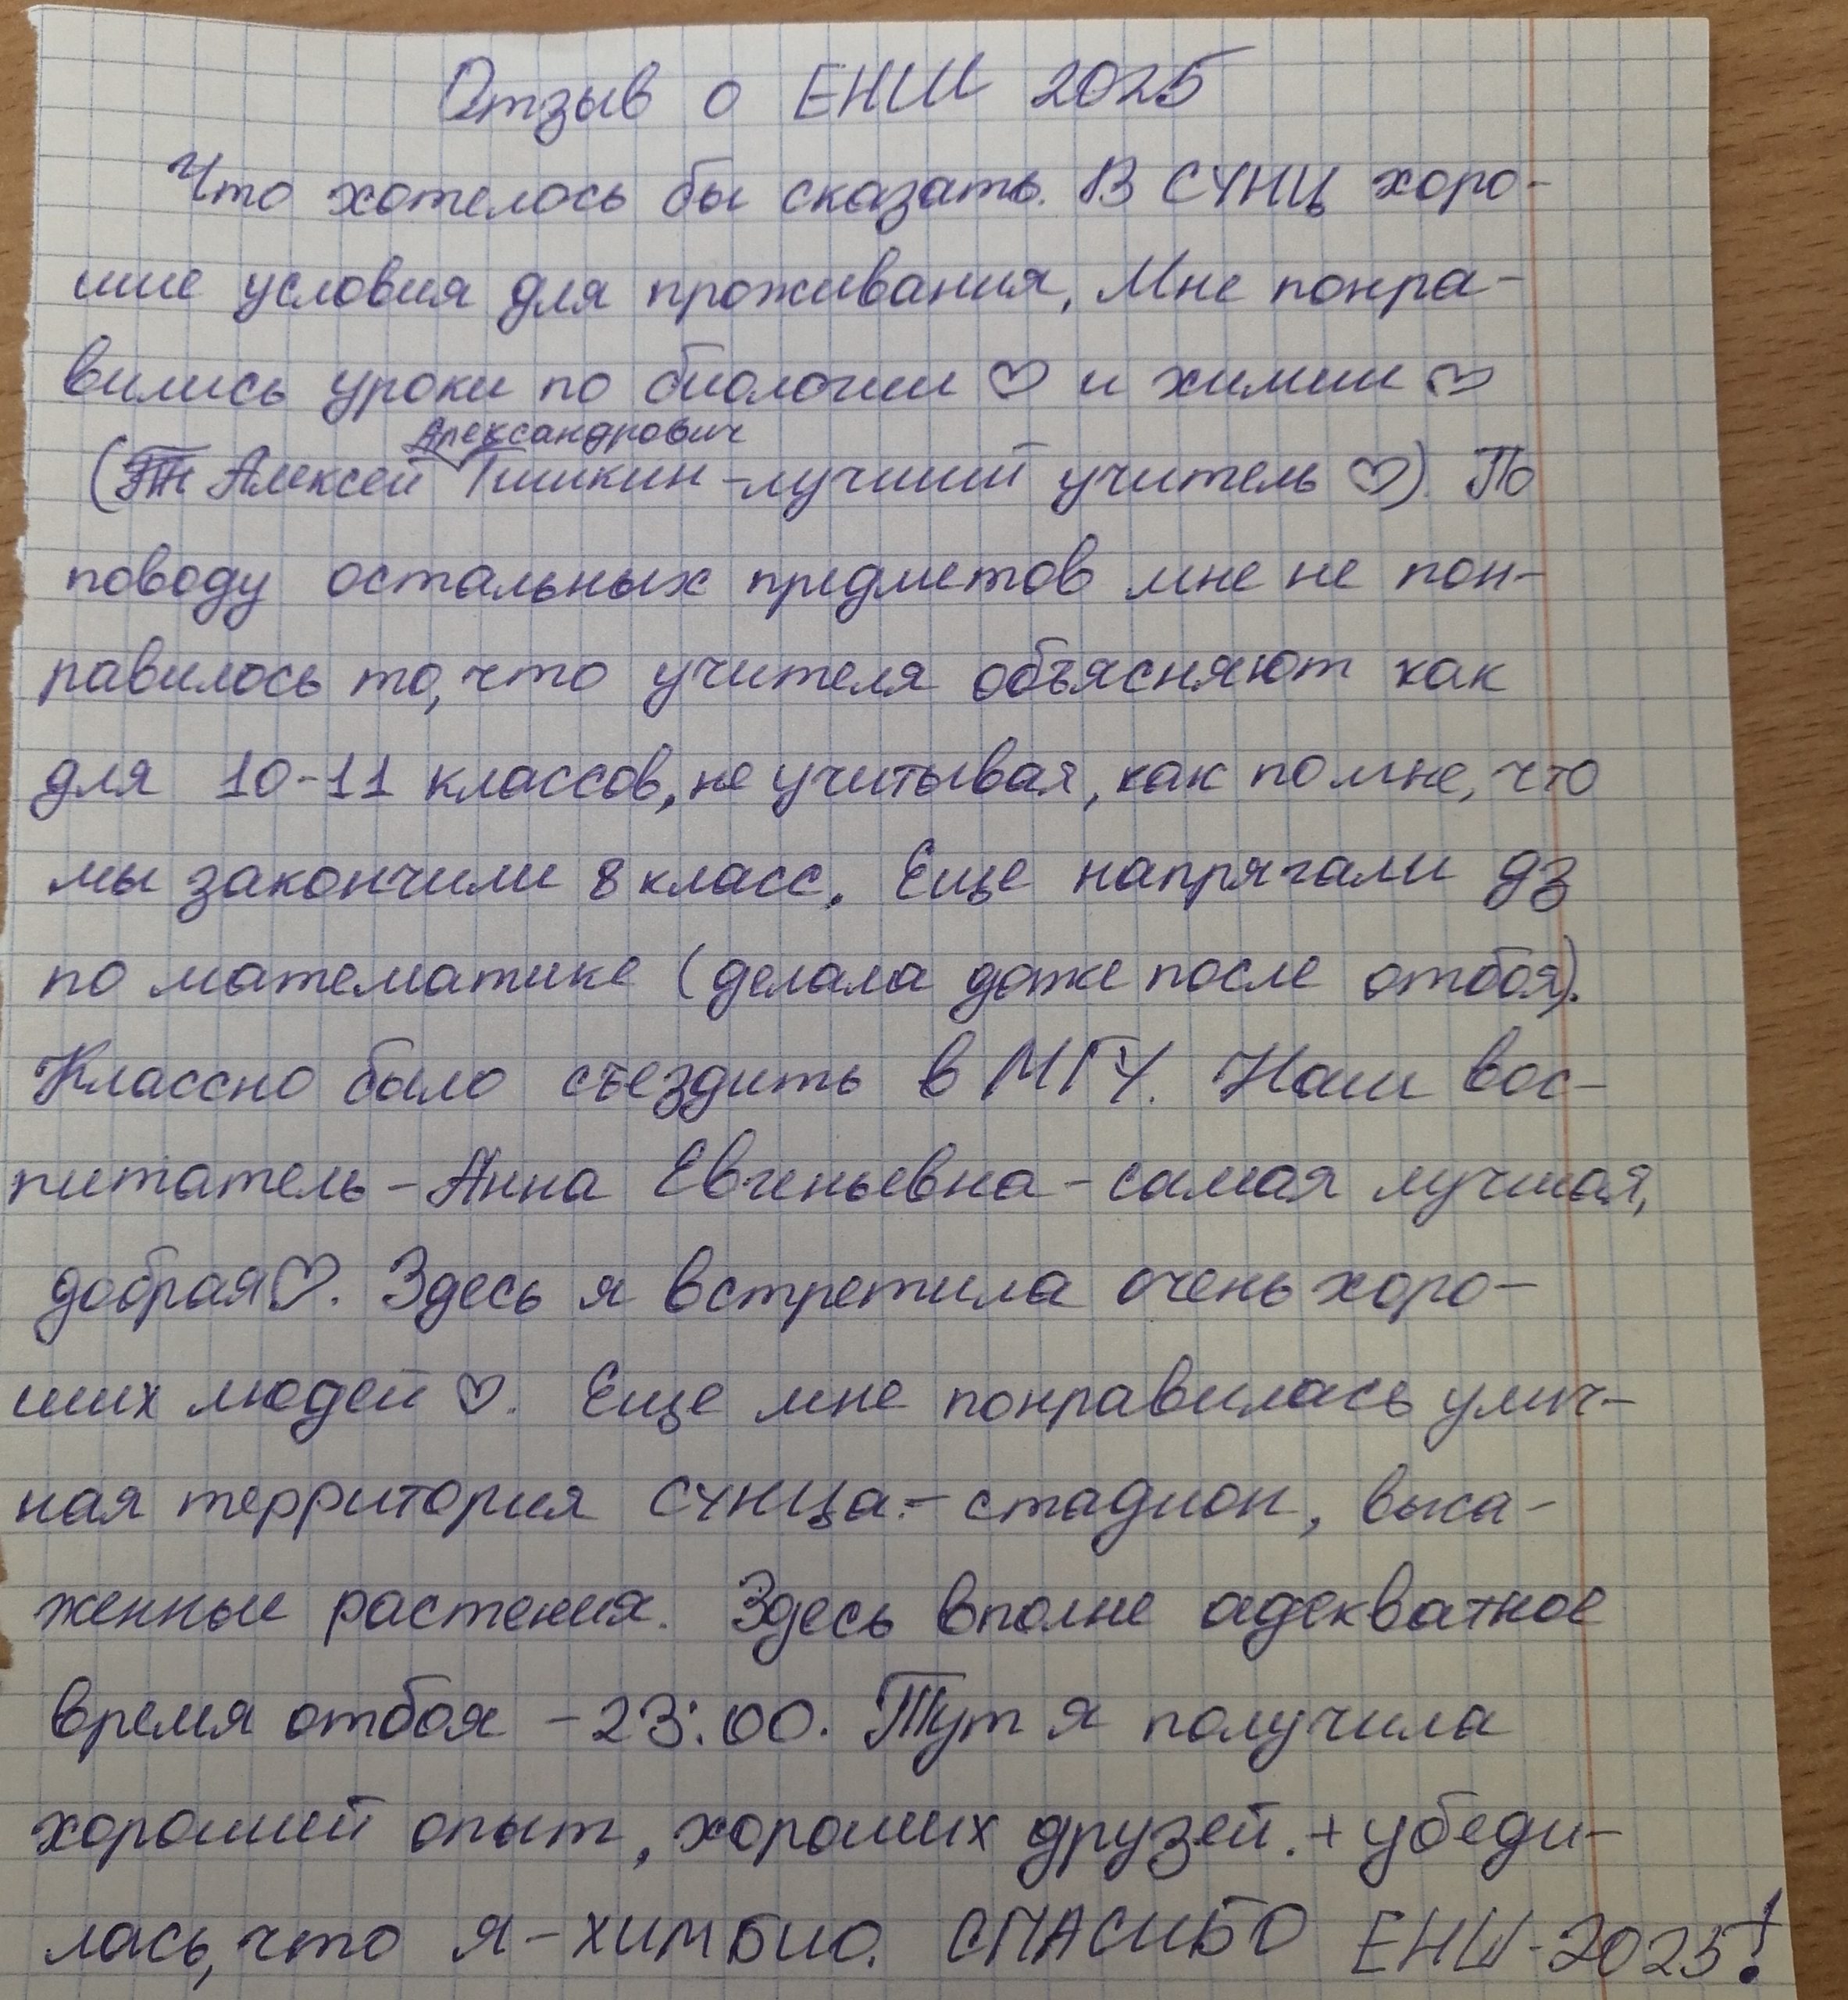 Отзыв о ЕНШ 2025
Что хотелось бы сказать. В СУНЦ хоро-
шие условия для проживания, Мне понра-
вились уроки по биологии ♡ и химии ♡
Александрович
(Алексей Тишкин - лучший учитель ♡). По
поводу остальных предметов мне не пон-
равилось то, что учителя объясняют как
для 10-11 классов, не учитывая, как по мне, что
мы закончили 8 класс. Еще напрягали дз
по математике (делала даже после отбоя).
Классно было съездить в МГУ. Наш вос-
питатель - Анна Евгеньевна - самая лучшая,
добрая♡. Здесь я встретила очень хоро-
ших людей ♡. Еще мне понравилась улич-
ная территория СУНЦа - стадион, выса-
женные растения. Здесь вполне адекватное
время отбоя - 23:00. Тут я получила
хороший опыт, хороших друзей. + убеди-
лась, что я - химбио. СПАСИБО ЕНШ-2025!